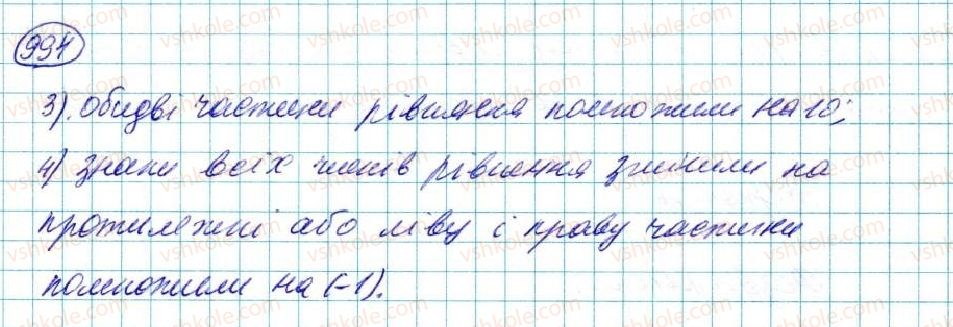 994
3). обидві частини рівняння помножили на 10;
4) знаки всіх членів рівняння змінили на
протилежні або ліву і праву частини
помножили на (-1).